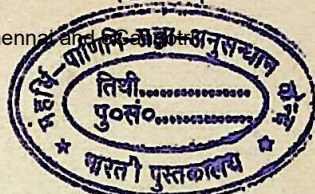 ennai and eGangotri
महर्षि-पाणिनि-
अनुसन्धान
तिथी..................
पु०सं०..................
★ भारती पुस्तकालय ★